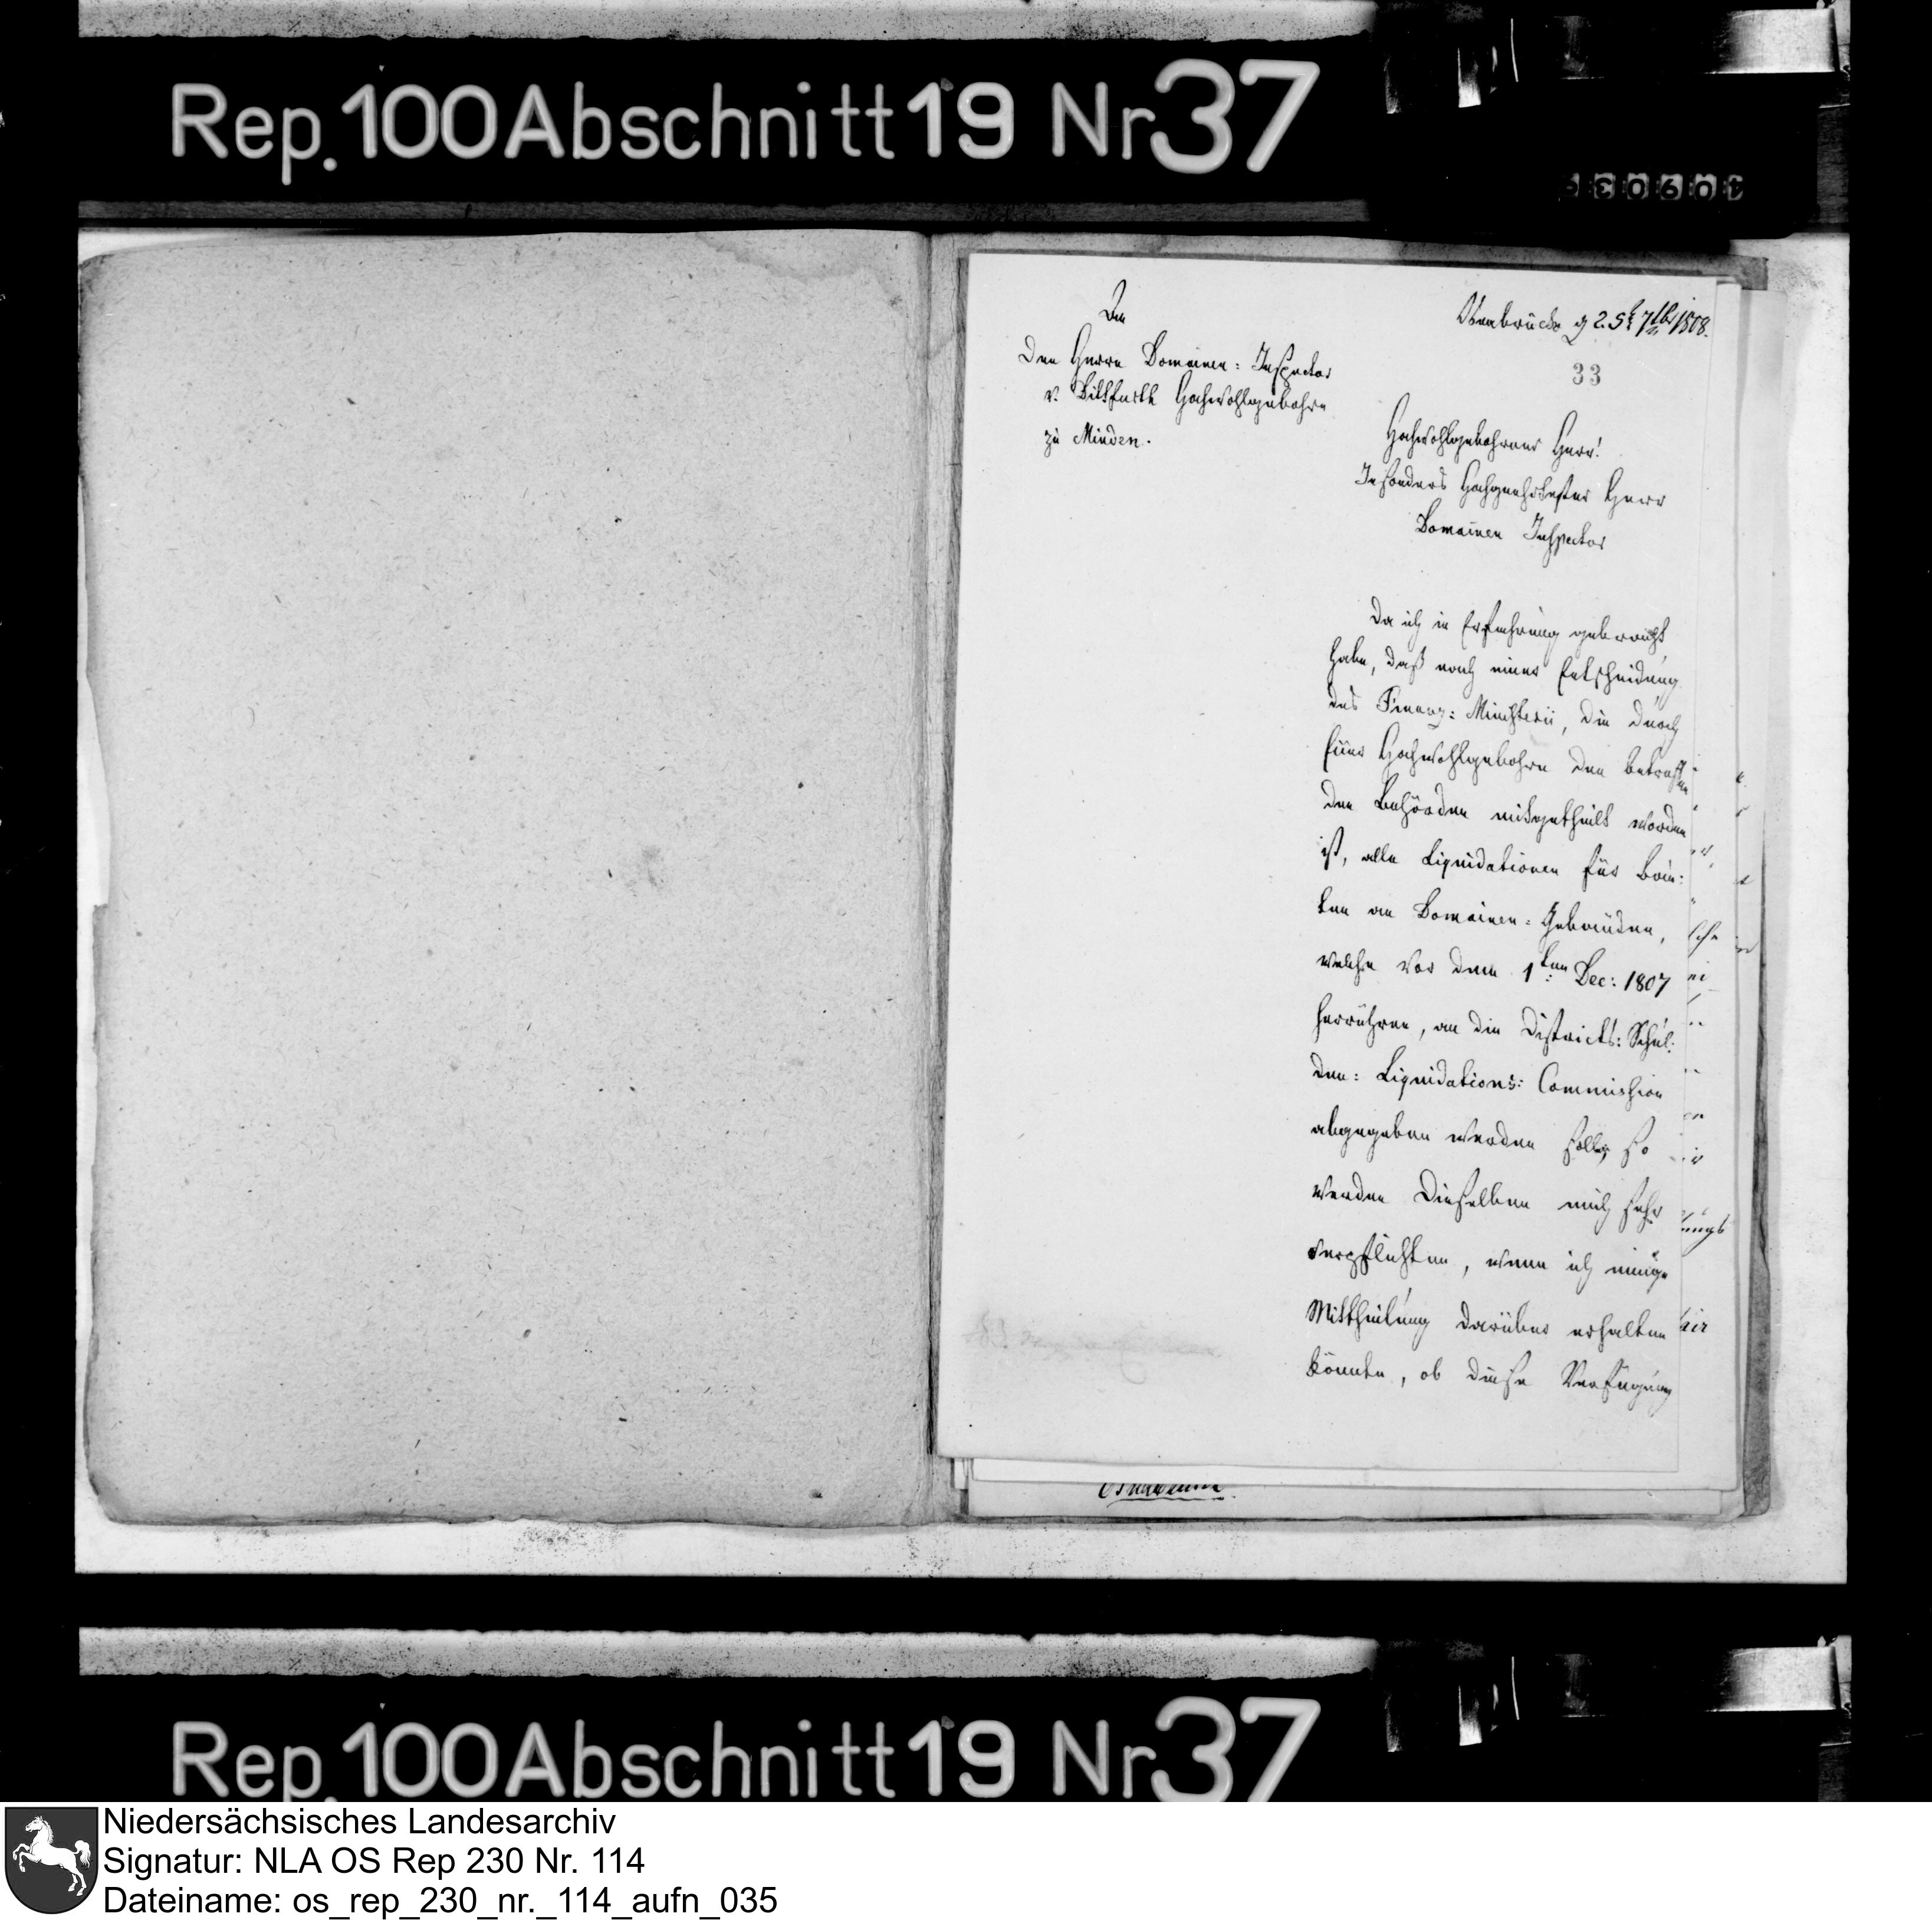 Rep. 100 Abschnitt 19 Nr 37
Osnabrück d 25t 7tbr 1808.
33
An
den Herrn Domainen: Inspector
v. Ditfurth Hochwohlgebohrn
zu Minden.
Hochwohlgebohrner Herr!
Insonders Hochgeehrtester Herr
Domainen Inspector
Da ich in Erfahrung gebracht
habe, daß nach einer Entscheidung
des Finanz: Ministerii, die durch
Euer Hochwohlgebohrn den betreffen
den Behörden mitgetheilt worden
ist, alle Liquidationen für Bau:
ten an Domainen-Gebäuden,
welche vor dem 1ten Dec: 1807
herrühren, an die Districts: Schul:
den: Liquidations: Commission
abgegeben werden sollen, so
werden Dieselben mich sehr
verpflichten, wenn ich einige
Mittheilung darüber erhalten
könnte, ob diese Verfügung
Rep. 100 Abschnitt 19 Nr 37
Niedersächsisches Landesarchiv
Signatur: NLA OS Rep 230 Nr. 114
Dateiname: os_rep_230_nr._114_aufn_035